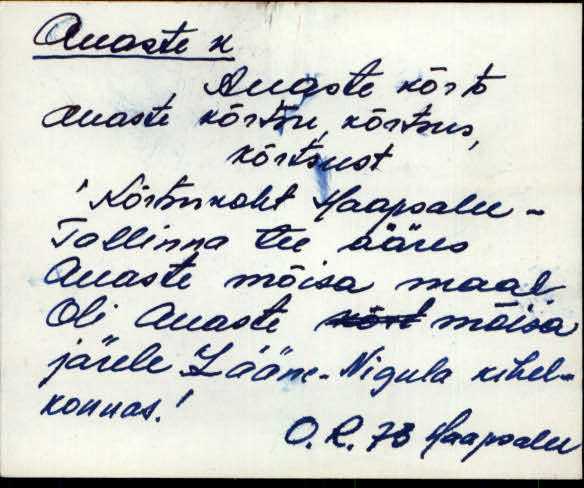 Auaste k
Auaste kõrts
Auaste kõrtsu, kõrtsus,
kõrtsust
'Kõrtsukoht Haapsalu -
Tallinna tee ääres
Auaste mõisa maal
Oli Auaste kõrt mõisa
järele Lääne-Nigula kihel-
konnas.'
O. R. 73 Haapsalu